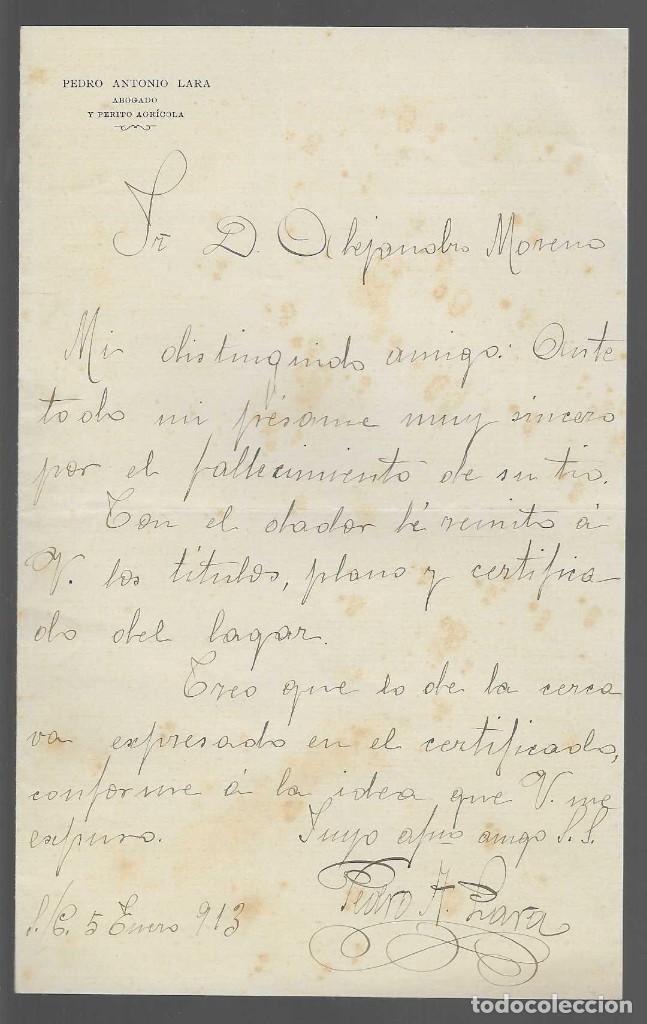 PEDRO ANTONIO LARA
ABOGADO
Y PERITO AGRÍCOLA
Sr D. Alejandro Moreno
Mi distinguido amigo: Ante
todo mi pésame muy sincero
por el fallecimiento de su tio.
Con el dador lé remito á
V. los títulos, plano y certifica-
do del lagar.
Creo que lo de la cerca
va expresado en el certificado,
conforme á la idea que V. me
expuso. Suyo afmo amigo S.S.
Pedro A. Lara
S/C. 5 Enero 913
todocoleccion